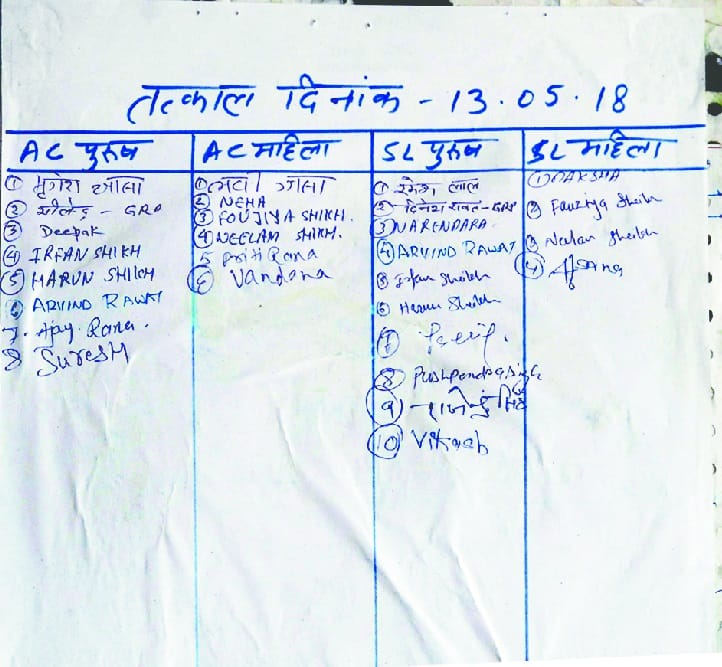 तत्काल दिनांक - 13.05.18
AC पुरुष
① मुगेश व्याला
② - GRP
③ Deepak
④ IRFAN SHIKH
⑤ HARUN SHIKH
⑥ ARVIND RAWAT
7. Ajay Rana.
8 SURESH
AC महिला
①
② NEHA
③ FOUJIYA SHIKH.
④ NEELAM SHIKH.
5 Priti Rana
⑥ Vandana
SL पुरुष
① रमेश लाल
② दिनेश रावत - GRP
③ NARENDARA.
④ ARVIND RAWAT
⑤ Irfan Sheikh
⑥ Harun Sheikh
⑦
⑧ Pushpendra Singh
⑨ राजेन्द्र सिंह
⑩ Vikash
SL महिला
① DAKSHA
② Fauziya Sheikh
③ Neelam Sheikh
④ Afsana